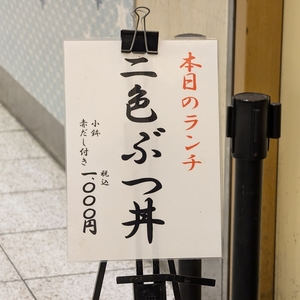 本日のランチ
二色ぶつ丼
小鉢
赤だし付き
税込
一、〇〇〇円